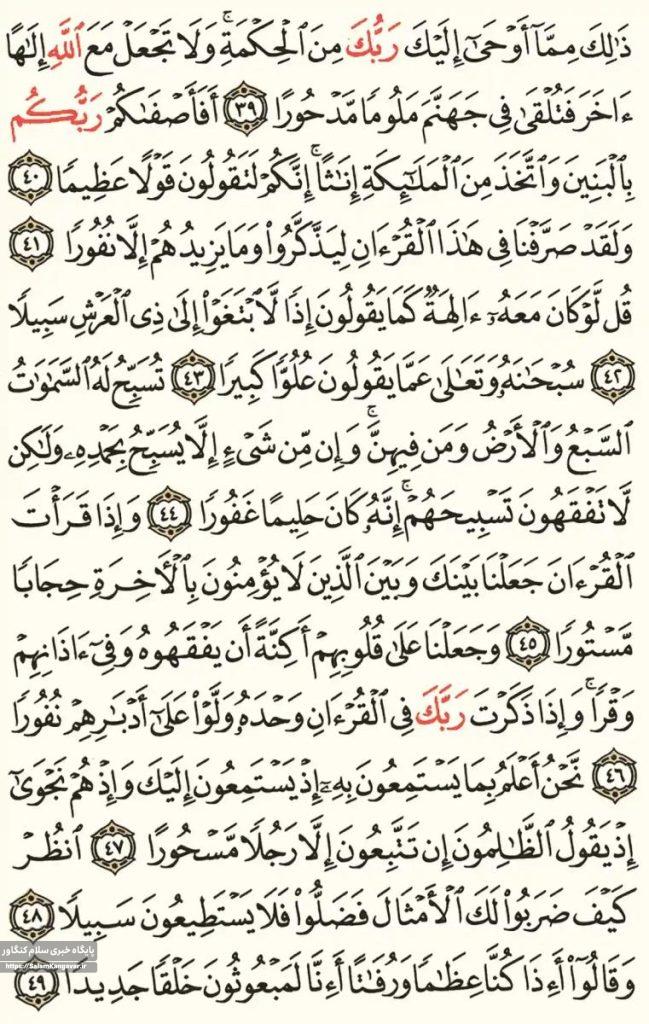 ذَٰلِكَ مِمَّآ أَوْحَىٰٓ إِلَيْكَ رَبُّكَ مِنَ ٱلْحِكْمَةِ ۗ وَلَا تَجْعَلْ مَعَ ٱللَّهِ إِلَٰهًا
ءَاخَرَ فَتُلْقَىٰ فِى جَهَنَّمَ مَلُومًا مَّدْحُورًا ٣٩ أَفَأَصْفَىٰكُمْ رَبُّكُم
بِٱلْبَنِينَ وَٱتَّخَذَ مِنَ ٱلْمَلَٰٓئِكَةِ إِنَٰثًا ۚ إِنَّكُمْ لَتَقُولُونَ قَوْلًا عَظِيمًا ٤٠
وَلَقَدْ صَرَّفْنَا فِى هَٰذَا ٱلْقُرْءَانِ لِيَذَّكَّرُوا۟ وَمَا يَزِيدُهُمْ إِلَّا نُفُورًا ٤١
قُل لَّوْ كَانَ مَعَهُۥٓ ءَالِهَةٌ كَمَا يَقُولُونَ إِذًا لَّٱبْتَغَوْا۟ إِلَىٰ ذِى ٱلْعَرْشِ سَبِيلًا
٤٢ سُبْحَٰنَهُۥ وَتَعَٰلَىٰ عَمَّا يَقُولُونَ عُلُوًّا كَبِيرًا ٤٣ تُسَبِّحُ لَهُ ٱلسَّمَٰوَٰتُ
ٱلسَّبْعُ وَٱلْأَرْضُ وَمَن فِيهِنَّ ۚ وَإِن مِّن شَىْءٍ إِلَّا يُسَبِّحُ بِحَمْدِهِۦ وَلَٰكِن
لَّا تَفْقَهُونَ تَسْبِيحَهُمْ ۗ إِنَّهُۥ كَانَ حَلِيمًا غَفُورًا ٤٤ وَإِذَا قَرَأْتَ
ٱلْقُرْءَانَ جَعَلْنَا بَيْنَكَ وَبَيْنَ ٱلَّذِينَ لَا يُؤْمِنُونَ بِٱلْءَاخِرَةِ حِجَابًا
مَّسْتُورًا ٤٥ وَجَعَلْنَا عَلَىٰ قُلُوبِهِمْ أَكِنَّةً أَن يَفْقَهُوهُ وَفِىٓ ءَاذَانِهِمْ
وَقْرًا ۚ وَإِذَا ذَكَرْتَ رَبَّكَ فِى ٱلْقُرْءَانِ وَحْدَهُۥ وَلَّوْا۟ عَلَىٰٓ أَدْبَٰرِهِمْ نُفُورًا
٤٦ نَّحْنُ أَعْلَمُ بِمَا يَسْتَمِعُونَ بِهِۦٓ إِذْ يَسْتَمِعُونَ إِلَيْكَ وَإِذْ هُمْ نَجْوَىٰٓ
إِذْ يَقُولُ ٱلظَّٰلِمُونَ إِن تَتَّبِعُونَ إِلَّا رَجُلًا مَّسْحُورًا ٤٧ ٱنظُرْ
كَيْفَ ضَرَبُوا۟ لَكَ ٱلْأَمْثَالَ فَضَلُّوا۟ فَلَا يَسْتَطِيعُونَ سَبِيلًا ٤٨
وَقَالُوٓا۟ أَءِذَا كُنَّا عِظَٰمًا وَرُفَٰتًا أَءِنَّا لَمَبْعُوثُونَ خَلْقًا جَدِيدًا ٤٩
پایگاه خبری سلام کنگاور
https://SalamKangavar.ir